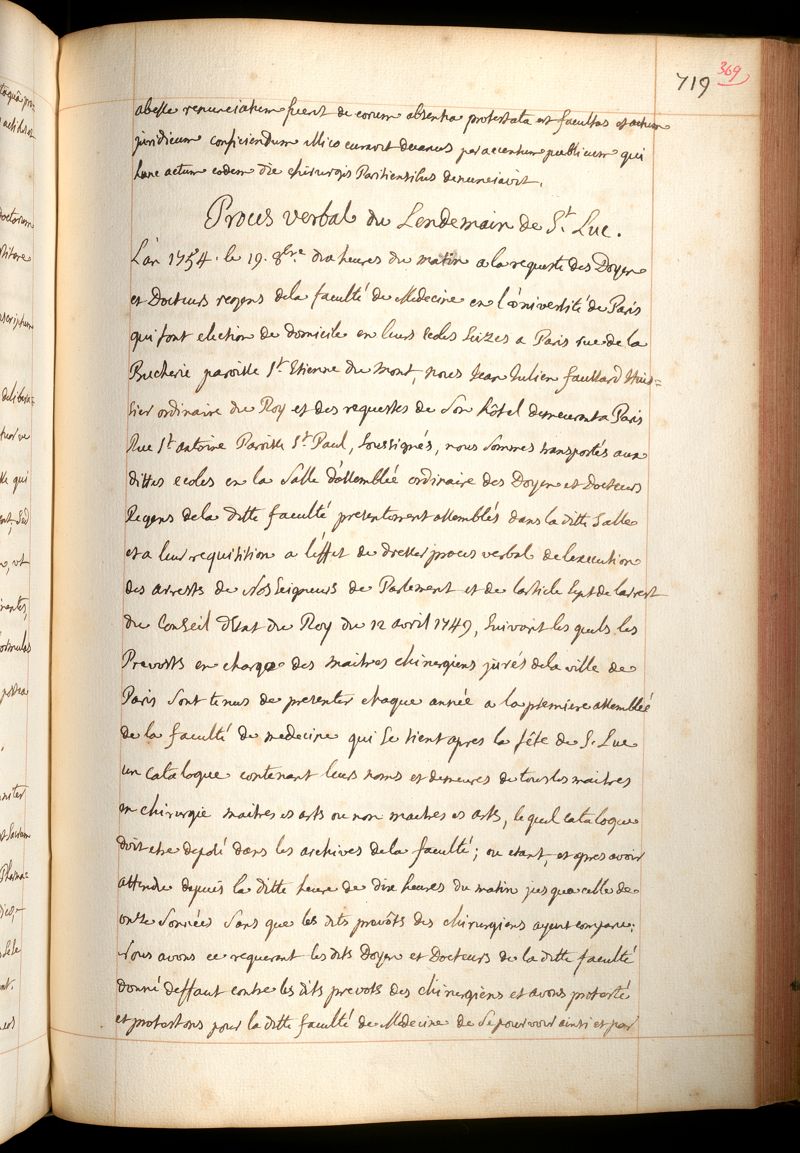 719 369
abesse renunciatum fuerit de eorum absentia protestata est facultas et actum
juridicum conficiendum illico curavit decanus per accensum publicum qui
hunc actum eodem die chirurgis Parisiensibus denunciavit.
Procès verbal du Lendemain de St. Luc.
L'an 1754. le 19. 8bre dix heures du matin a la requeste des Doyen
et Docteurs regens de la faculté de Medecine en l'université de Paris
qui font election de domicile en leurs ecoles sizes a Paris rue de la
Bucherie paroisse St. Etienne du Mont, nous Jean Julien Huis=
sier ordinaire du Roy et des requestes de son hôtel demeurant a Paris
Rue St antoine Paroisse St. Paul, soussignés, nous sommes transportés aux
dittes ecoles en la salle d'assemblée ordinaire des Doyen et Docteurs
Regens de la ditte faculté presentement assemblés dans la ditte salle
et a leur requisition a l'effet de dresser proces verbal de l'execution
des arrests de Nosseigneurs de Parlement et de l'article sept de l'arrest
du Conseil d'Etat du Roy du 12 avril 1749, suivant les quels les
Prevosts en charge des maitres chirurgiens jurés de la ville de
Paris sont tenus de presenter chaque année a la premiere assemblée
de la faculté de medecine qui se tient apres la fête de S. Luc
un catalogue contenant leurs noms et demeures de tous les maitres
en chirurgie maitres es arts ou non maitres es arts, le quel catalogue
doit etre deposé dans les archives de la faculté; ou etant, et apres avoir
attendu depuis la ditte heure de dix heures du matin jusqu'a celle de
onze sonnées sans que les dits prevôts des chirurgiens ayent comparu;
Nous avons ce requerant les dits Doyen et Docteurs de la ditte faculté
donné deffaut contre les dits prevots des chirurgiens et avons protesté
et protestons pour la ditte faculté de Medecine de se pourvoir ainsi et par